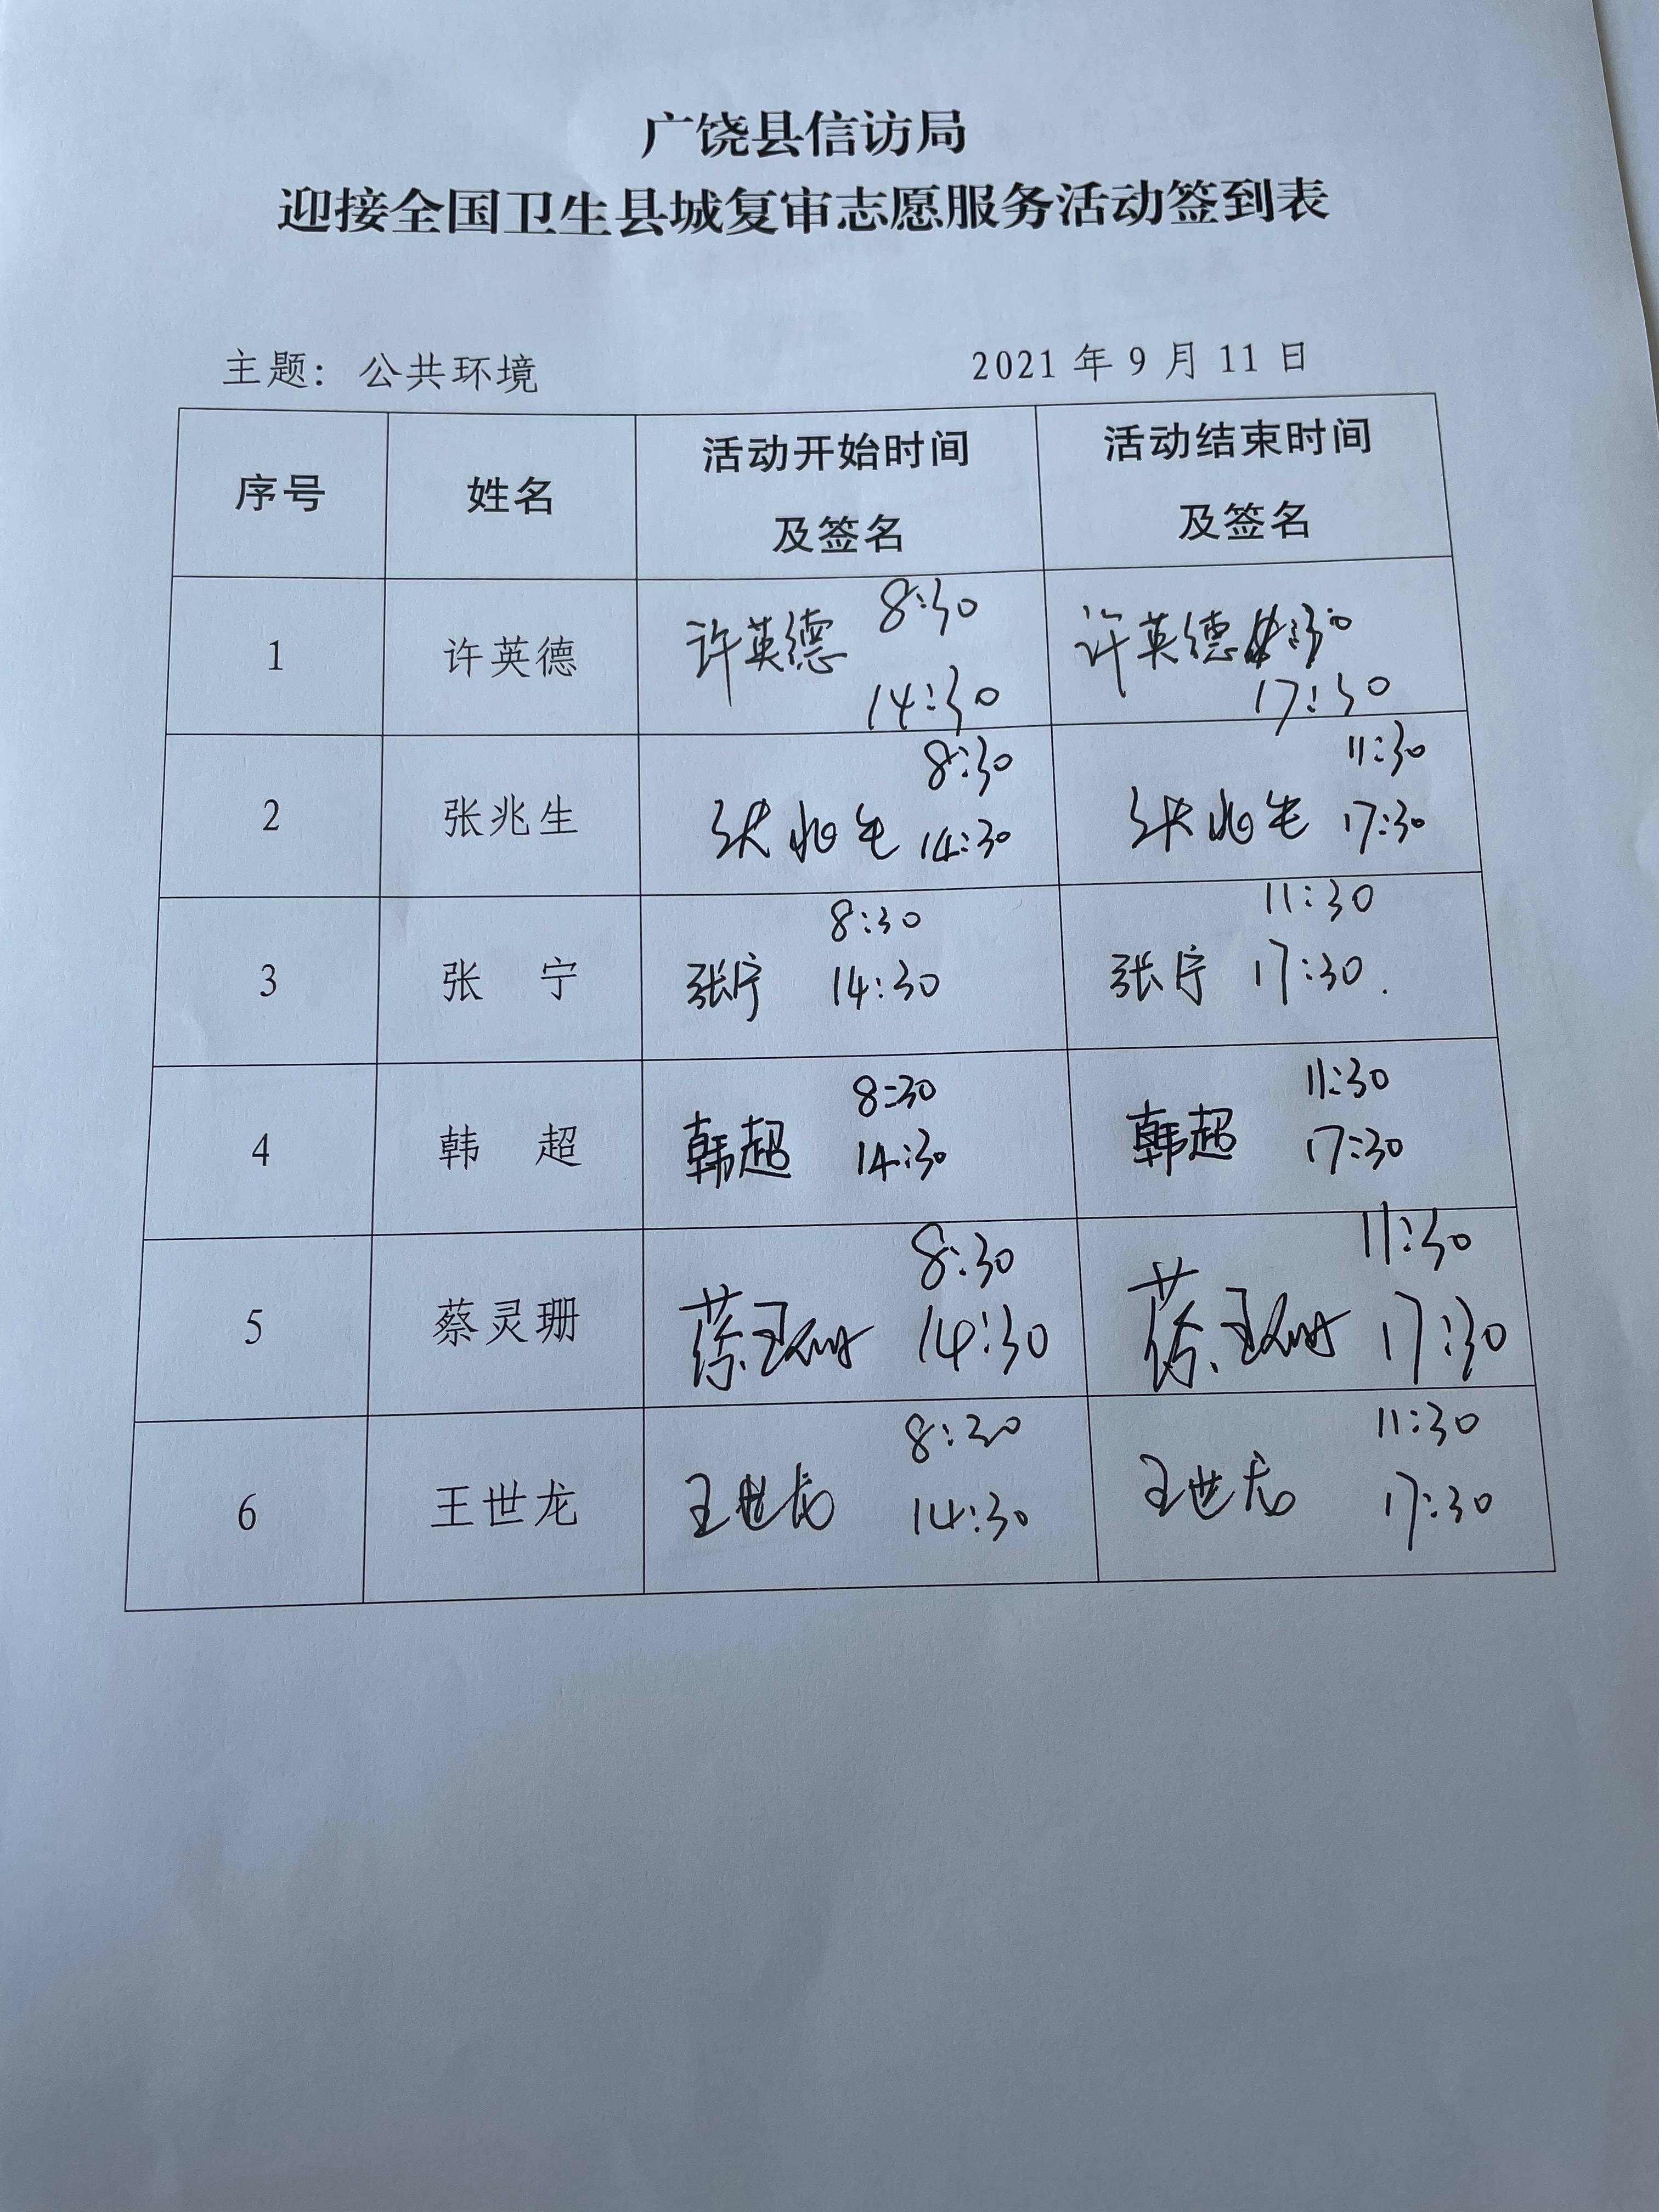 广饶县信访局
迎接全国卫生县城复审志愿服务活动签到表
主题：公共环境 2021年9月11日
序号 姓名 活动开始时间及签名 活动结束时间及签名
1 许英德 许英德 8:30 14:30 许英德 :30 17:30
2 张兆生 张兆生 8:30 14:30 张兆生 11:30 17:30
3 张 宁 张宁 8:30 14:30 张宁 11:30 17:30.
4 韩 超 韩超 8:30 14:30 韩超 11:30 17:30
5 蔡灵珊 蔡灵珊 8:30 14:30 蔡灵珊 11:30 17:30
6 王世龙 王世龙 8:30 14:30 王世龙 11:30 17:30